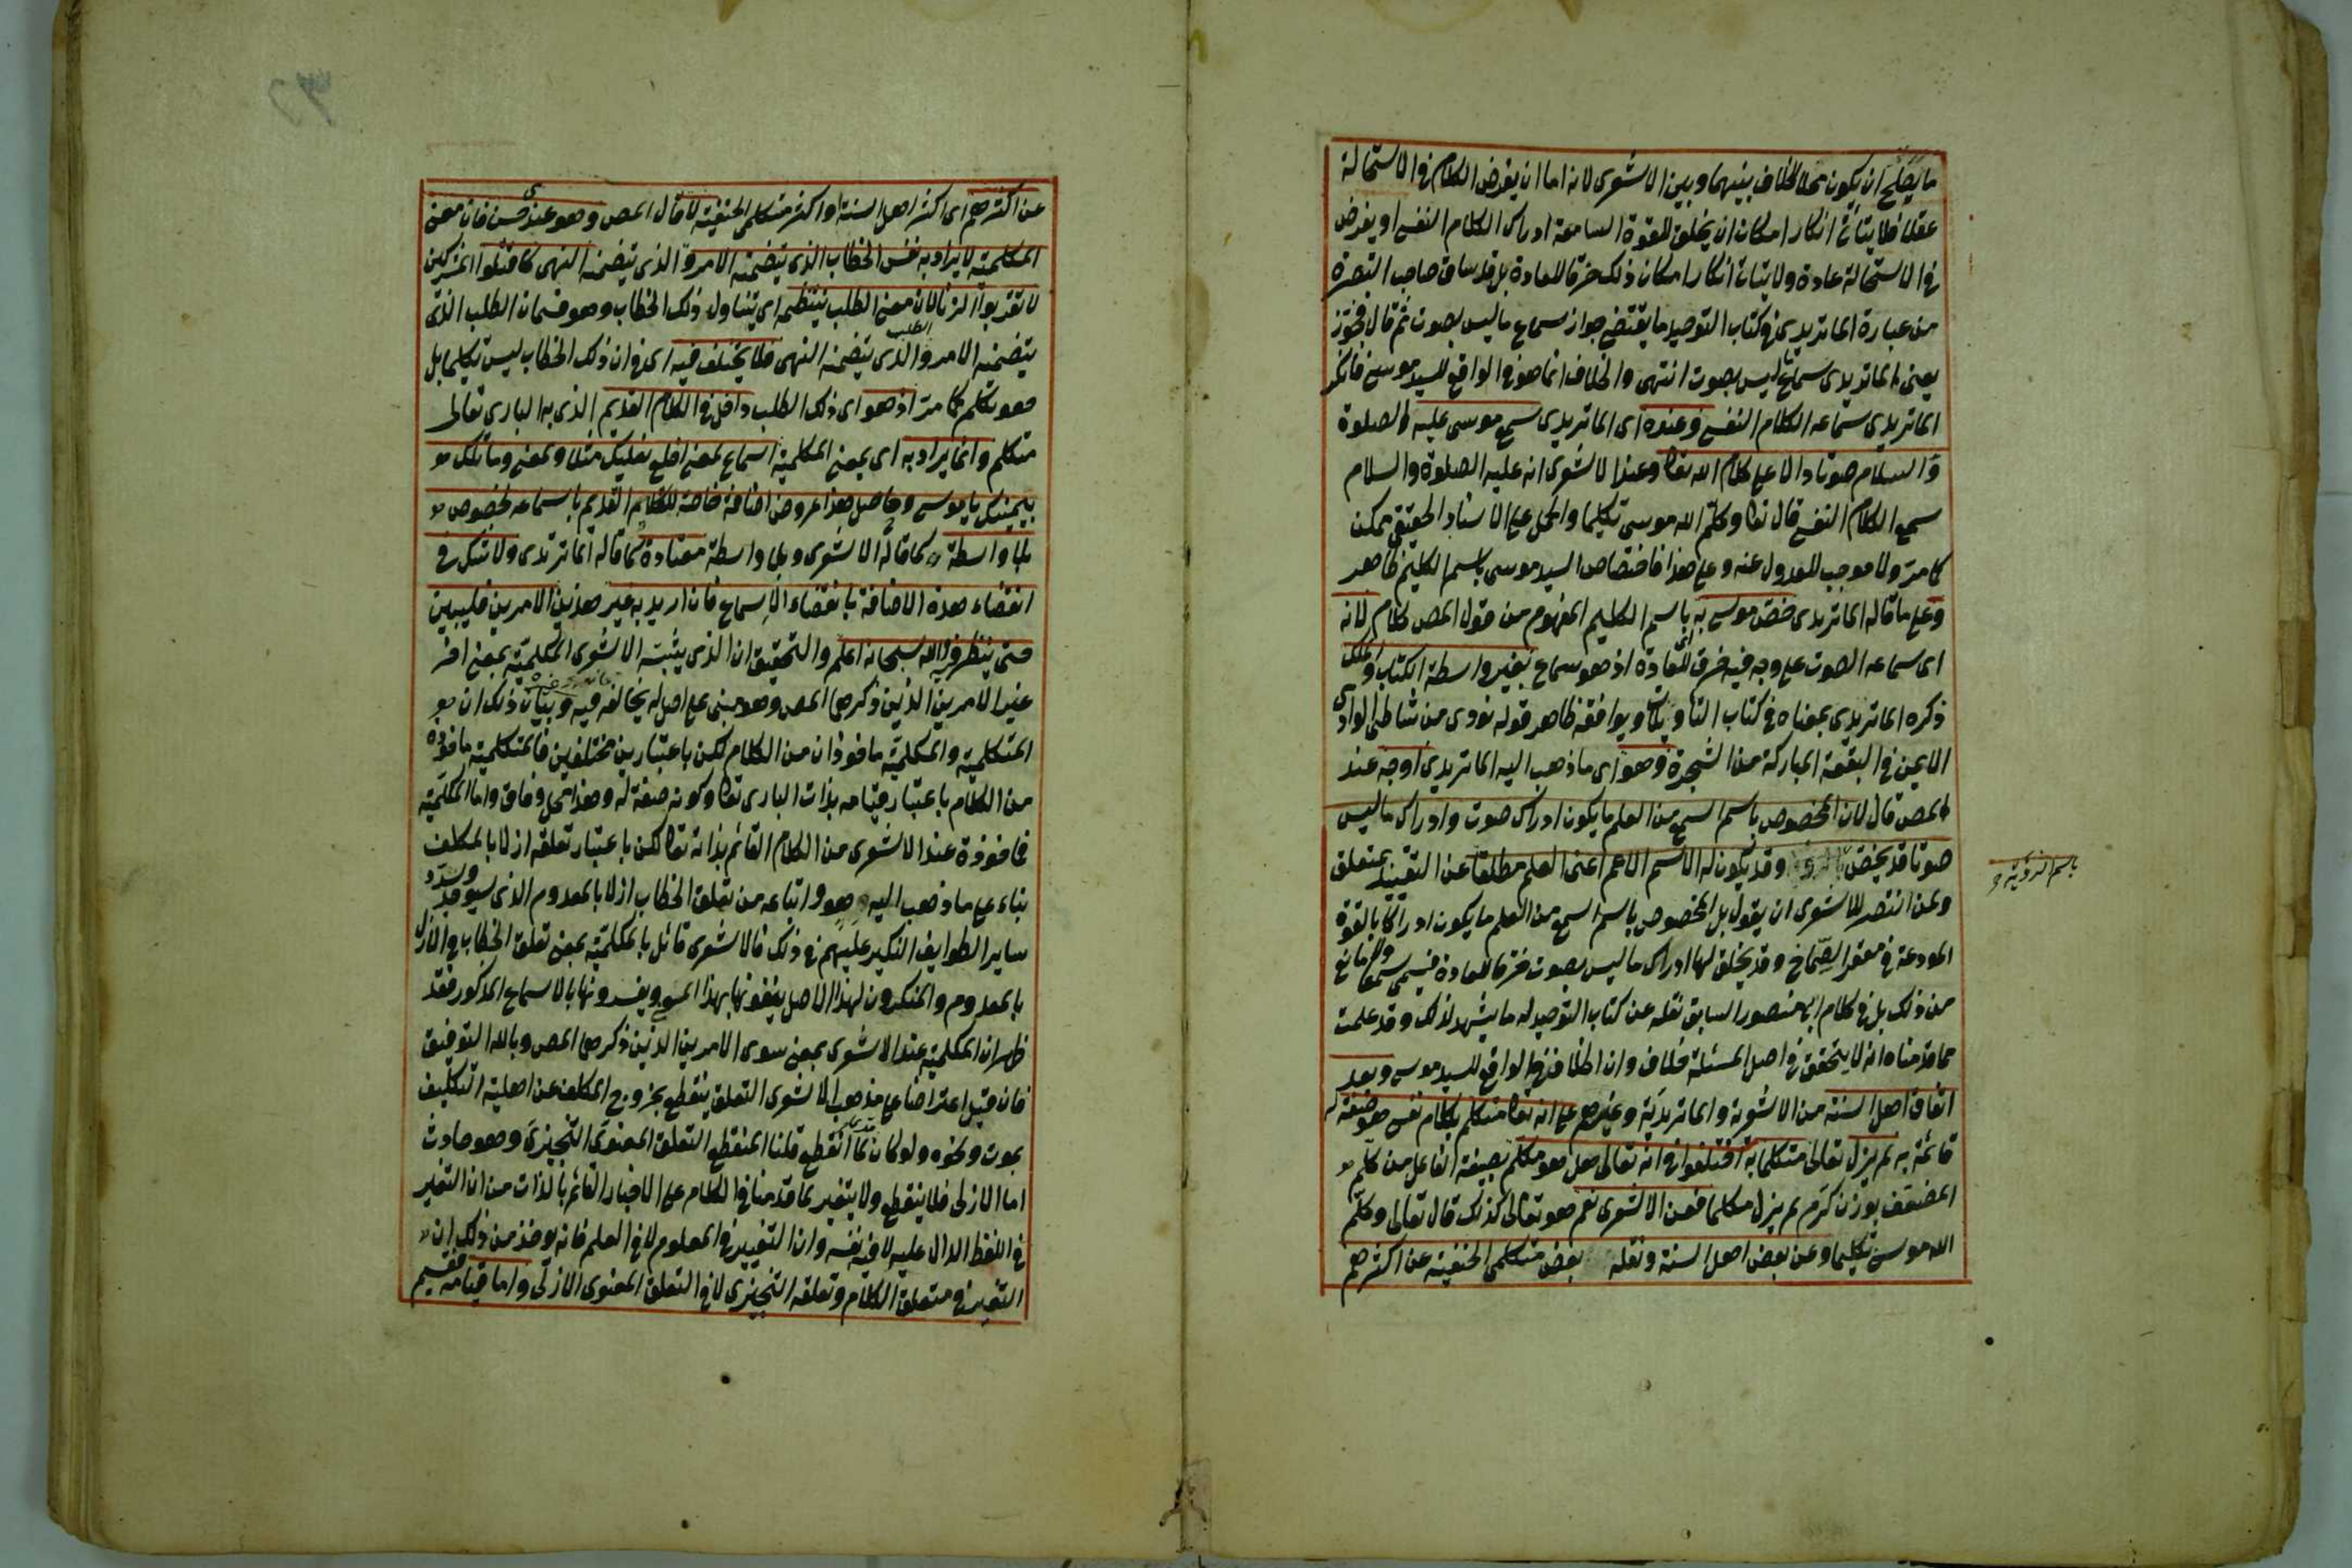 ما يصلح ان يكون محلا للخلاف بينهما وبين الاشعرى لانه اما ان يفرض الكلام فى الاستحالة
عقلا فلا يتأتى انكار امكان ان يخلق للقوة السامعة ادراك الكلام النفسى او يفرض
فى الاستحالة عادة ولا يتأتى انكار امكان ذلك خرقا للعادة بل قد ساق صاحب التبصرة
من عبارة الماتريدى فى كتاب التوحيد ما يقتضى جواز سماع ما ليس بصوت ثم قال فجوّز
يعنى الماتريدى سماع ما ليس بصوت انتهى والخلاف انما هو فى الواقع للسيد موسى فانكر
الماتريدى سماعه الكلام النفسى وعنده اى الماتريدى سمع موسى عليه الصلوة
والسلام صوتا دالا على كلام الله تعا وعند الاشعرى انه عليه الصلوة والسلام
سمع الكلام النفسى قال تعا وكلّم الله موسى تكليما والحمل على الاسناد الحقيقى ممكن
كما مرّ ولا موجب للعدول عنه وعلى هذا فاختصاص السيد موسى باسم الكليم ظاهر
وعلى ما قاله الماتريدى خصّ موسى به باسم الكليم المفهوم من قول المص كلام لانه
اى سماعه الصوت على وجه فيه خرق للعادة اذ هو سماع بغير واسطة الكتاب والملك
ذكره الماتريدى بمعناه فى كتاب التأويلات ويوافقه ظاهر قوله نودى من شاطئ الوادى
الايمن فى البقعة المباركة من الشجرة وهو اى ما ذهب اليه الماتريدى اوجه عند
المص قال لان المخصوص باسم السمع من العلم ما يكون ادراك صوت وادراك ما ليس
صوتا قد يخصّ باسم الرؤية وقد يكون له الاسم الاعم اعنى العلم مطلقا عن التقييد بمتعلق
ولمن انتصر للاشعرى ان يقول بل المخصوص باسم السمع من العلم ما يكون ادراكا بالقوة
المودعة فى مقعر الصماخ وقد يخلق لها ادراك ما ليس بصوت خرقا للعادة فيسمى سمعا ولا مانع
من ذلك بل فى كلام ابى منصور السابق نقله عن كتاب التوحيد له ما يشهد لذلك وقد علمت
مما قدمناه انه لا يتحقق فى اصل المسئلة خلاف وان الخلاف فى الواقع للسيد موسى وبعد
اتفاق اهل السنة من الاشعرية والماتريدية وغيرهم على انه تعا متكلم بكلام نفسى هو صفة له
قائمة به لم يزل تعالى متكلما به اختلفوا فى انه تعالى هل هو مكلم بصيغة الفاعل من كلّم
المضعّف بوزن كرّم لم يزل مكلما فعن الاشعرى نعم هو تعالى كذلك قال تعالى وكلّم
الله موسى تكليما وعن بعض اهل السنة ونقله بعض متكلمى الحنفية عن اكثرهم
باسم الرؤية
عن اكثرهم اى اكثر اهل السنة او اكثر متكلمى الحنفية لا قال المص وهو عندى حسن فان معنى
المكلمية لا يراد به نفس الخطاب الذى يتضمنه الامر والذى يتضمنه النهى كاقتلوا المشركين
لا تقربوا الزنا لان معنى الطلب ينتظمه اى يتناول ذلك الخطاب وهو قسمان الطلب الذى
يتضمنه الامر والطلب الذى يتضمنه النهى فلا يختلف فيه اى فى ان ذلك الخطاب ليس تكليما بل
هو تكلم كما مرّ اذ هو اى ذلك الطلب داخل فى الكلام القديم الذى به البارى تعالى
متكلم وانما يراد به اى بمعنى المكلمية اسماع لمعنى اخلع نعليك مثلا ولمعنى وما تلك
بيمينك يا موسى وحاصل هذا عروض اضافة خاصة للكلام القديم باسماعه لمخصوص
بلا واسطة كما قاله الاشعرى وبلا واسطة معتادة كما قاله الماتريدى ولا شك فى
انقضاء هذه الاضافة بانقضاء الاسماع فان اريد به غير هذين الامرين فليبين
حتى ينظر فيه والله سبحانه اعلم والتحقيق ان الذى يثبته الاشعرى المكلمية بمعنى اخر
غير الامرين الذين ذكرهما المص وهو مبنى على اصل له يخالفه فيه غيره وبيان ذلك ان
المتكلمية والمكلمية ماخوذان من الكلام لكن باعتبارين مختلفين فالمتكلمية ماخوذة
من الكلام باعتبار قيامه بذات البارى تعا وكونه صفة له وهذا محل وفاق واما المكلمية
فماخوذة عند الاشعرى من الكلام القائم بذاته تعا لكن باعتبار تعلقه ازلا بالمكلف
بناء على ما ذهب اليه هو واتباعه من تعلق الخطاب ازلا بالمعدوم الذى سيوجد وشدد
ساير الطوايف النكير عليهم فى ذلك فالاشعرى قائل بالمكلمية بمعنى تعلق الخطاب فى الازل
بالمعدوم والمنكرون لهذا الاصل ينفونها بهذا المعنى ويفسرونها بالاسماع المذكور فقد
ظهر ان المكلمية عند الاشعرى بمعنى سوى الامرين الذين ذكرهما المص وبالله التوفيق
فان قيل اعتراضا على مذهب الاشعرى التعلق ينقطع بخروج المكلف عن اهلية التكليف
بموت ونحوه ولو كان قديما لما انقطع قلنا المنقطع التعلق المعنوى التنجيزى وهو حادث
اما الازلى فلا ينقطع ولا يتغير لما قدمنا فى الكلام على الاخبار القائم بالذات من ان التغير
فى اللفظ الدال عليه لا فيه نفسه وان التغيير فى المعلوم لا فى العلم فانه يوخذ من ذلك ان
التغير فى متعلق الكلام وتعلقه التنجيزى لا فى التعلق المعنوى الازلى واما قيامه